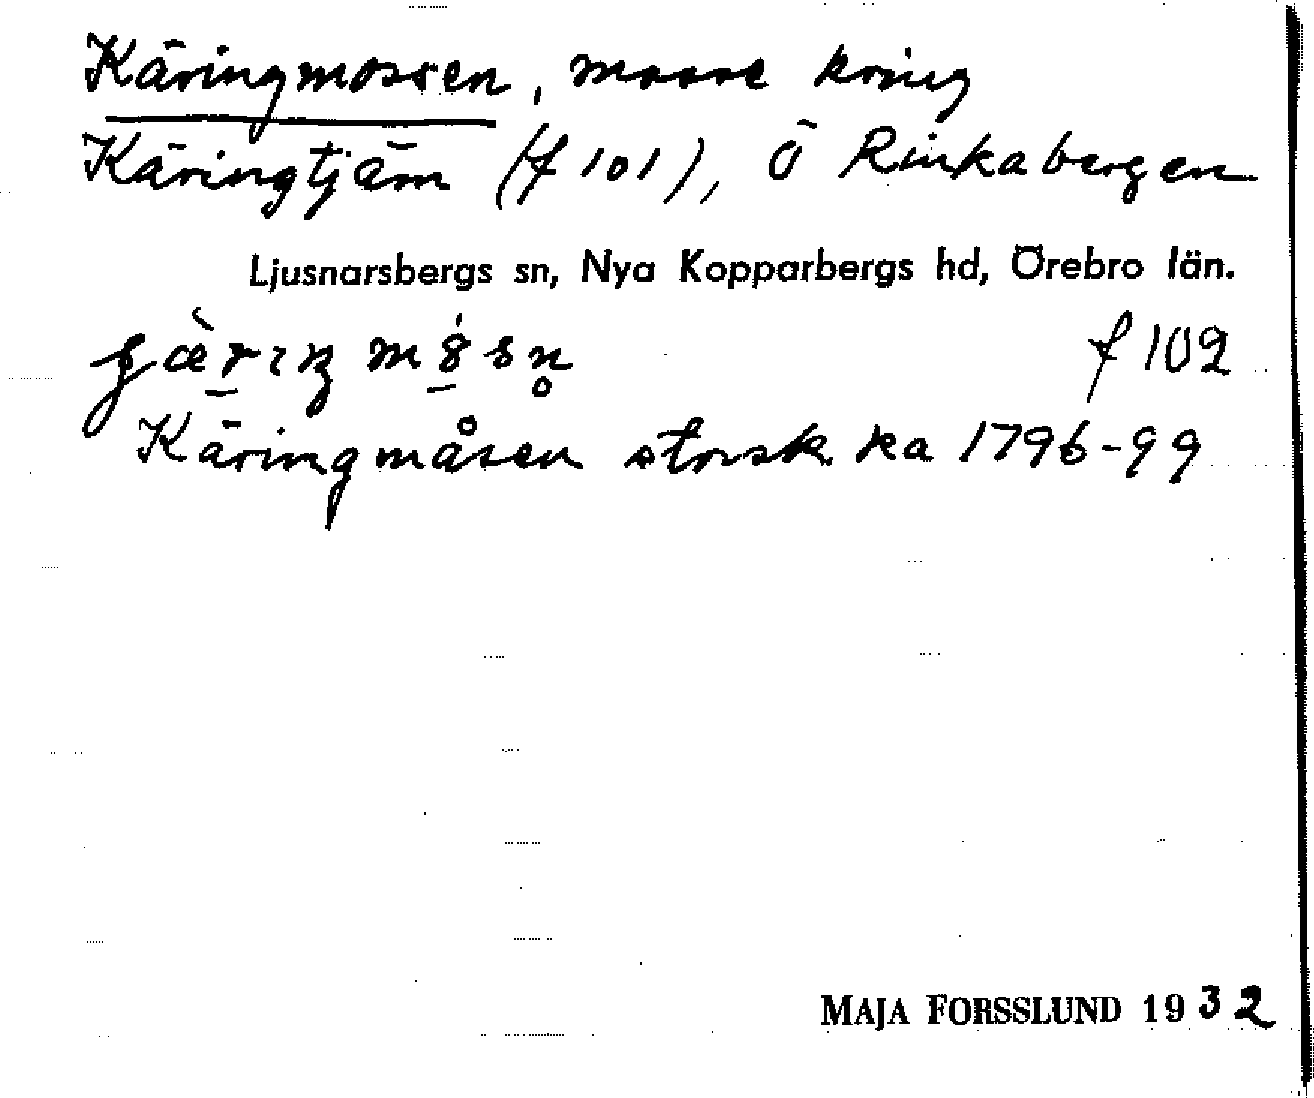 Käringmossen, mosse kring
Käringtjärn (f 101), Ö Rinkabergen
Ljusnarsbergs sn, Nya Kopparbergs hd, Örebro län.
f 102
Käringmåsen storsk. ka 1796-99
MAJA FORSSLUND 1932